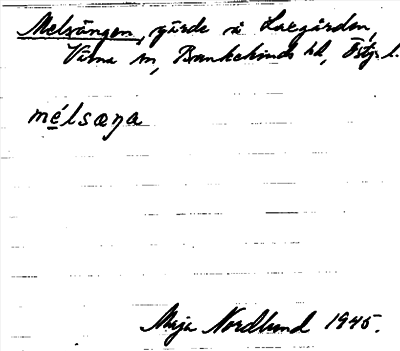 Melsängen, gärde å Laxgården,
Värna sn, Bankekinds hd, Östg. l.
mélsæŋa
Maja Nordlund 1945.